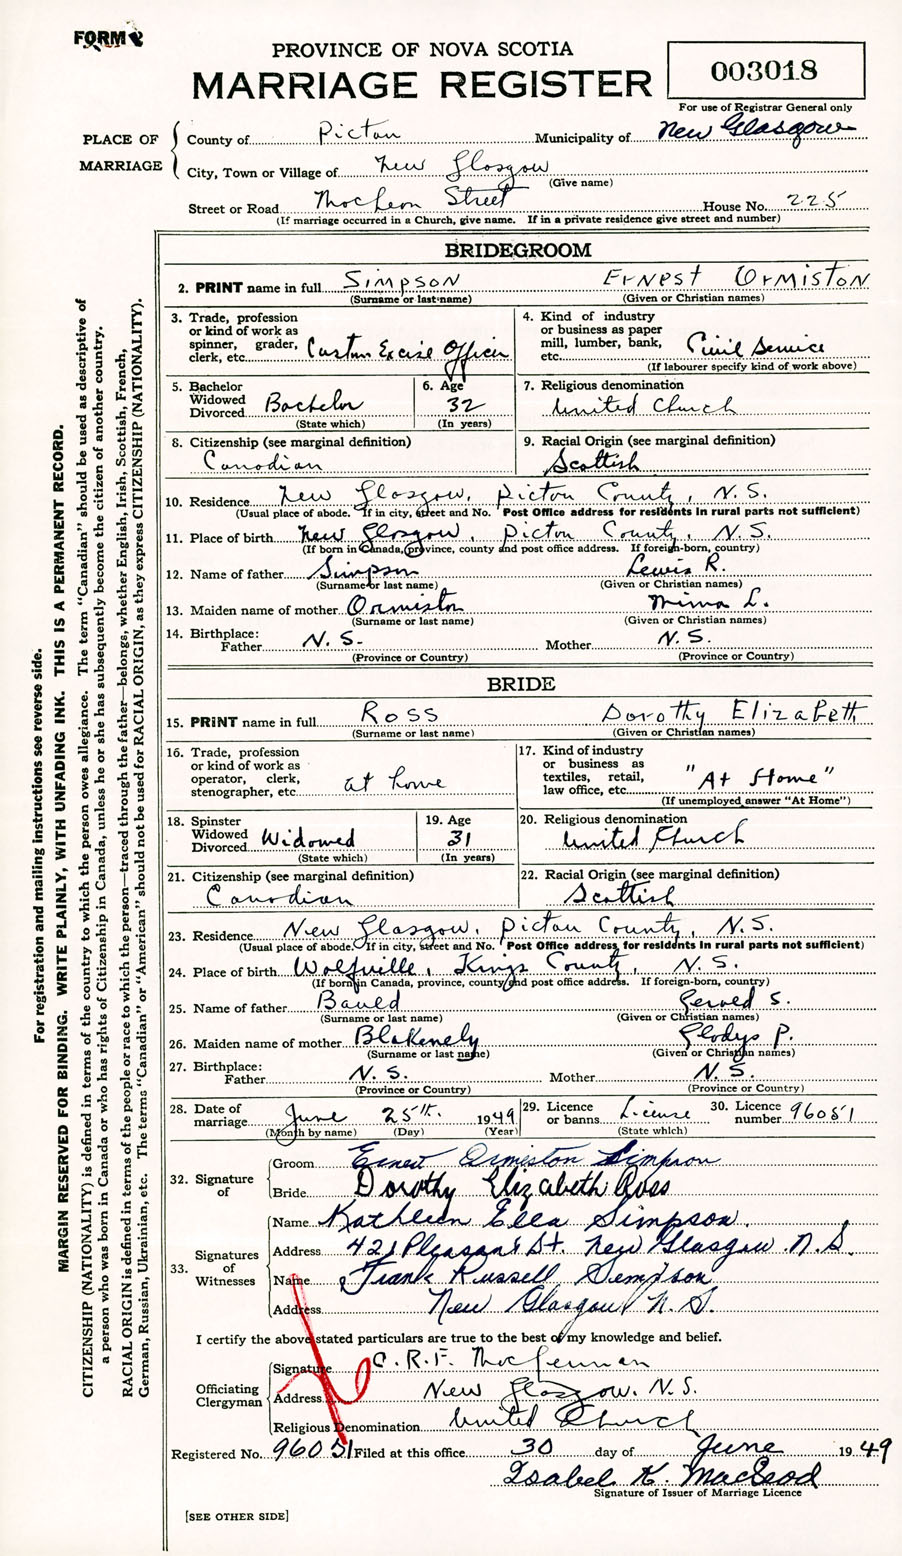 FORM 2
PROVINCE OF NOVA SCOTIA
MARRIAGE REGISTER
003018
For use of Registrar General only
PLACE OF MARRIAGE
County of Pictou Municipality of New Glasgow
City, Town or Village of New Glasgow
(Give name)
Street or Road MacLean Street House No. 225
(If marriage occurred in a Church, give name. If in a private residence give street and number)
BRIDEGROOM
2. PRINT name in full SIMPSON ERNEST ORMISTON
(Surname or last name) (Given or Christian names)
3. Trade, profession or kind of work as spinner, grader, clerk, etc. Custom Excise Officer
4. Kind of industry or business as paper mill, lumber, bank, etc. Civil Service
(If labourer specify kind of work above)
5. Bachelor Widowed Divorced Bachelor
(State which)
6. Age 32
(In years)
7. Religious denomination
United Church
8. Citizenship (see marginal definition)
Canadian
9. Racial Origin (see marginal definition)
Scottish
10. Residence New Glasgow, Pictou County, N.S.
(Usual place of abode. If in city, street and No. Post Office address for residents in rural parts not sufficient)
11. Place of birth New Glasgow, Pictou County, N.S.
(If born in Canada, province, county and post office address. If foreign-born, country)
12. Name of father Simpson Lewis R.
(Surname or last name) (Given or Christian names)
13. Maiden name of mother Ormiston Mima L.
(Surname or last name) (Given or Christian names)
14. Birthplace:
Father N.S. Mother N.S.
(Province or Country) (Province or Country)
BRIDE
15. PRINT name in full ROSS Dorothy ElizabEth
(Surname or last name) (Given or Christian names)
16. Trade, profession or kind of work as operator, clerk, stenographer, etc. at home
17. Kind of industry or business as textiles, retail, law office, etc. "At Home"
(If unemployed answer "At Home")
18. Spinster Widowed Divorced Widowed
(State which)
19. Age 31
(In years)
20. Religious denomination
United Church
21. Citizenship (see marginal definition)
Canadian
22. Racial Origin (see marginal definition)
Scottish
23. Residence New Glasgow, Pictou County, N.S.
(Usual place of abode. If in city, street and No. Post Office address for residents in rural parts not sufficient)
24. Place of birth Wolfville, Kings County, N.S.
(If born in Canada, province, county and post office address. If foreign-born, country)
25. Name of father Bauld Gerald S.
(Surname or last name) (Given or Christian names)
26. Maiden name of mother Blakenely Gladys P.
(Surname or last name) (Given or Christian names)
27. Birthplace:
Father N.S. Mother N.S.
(Province or Country) (Province or Country)
28. Date of marriage June 25th. 1949
(Month by name) (Day) (Year)
29. Licence or banns License
(State which)
30. Licence number 96051
32. Signature of
Groom Ernest Ormiston Simpson
Bride Dorothy Elizabeth Ross
33. Signatures of Witnesses
Name Kathleen Ella Simpson.
Address 421 Pleasant St. New Glasgow N.S.
Name Frank Russell Simpson
Address New Glasgow N.S.
I certify the above stated particulars are true to the best of my knowledge and belief.
Officiating Clergyman
Signature C.R.F. MacLennan
Address New Glasgow, N.S.
Religious Denomination United Church
Registered No. 96051 Filed at this office 30 day of June 1949
Isabel K. MacLeod
Signature of Issuer of Marriage Licence
[SEE OTHER SIDE]
For registration and mailing instructions see reverse side.
MARGIN RESERVED FOR BINDING. WRITE PLAINLY, WITH UNFADING INK. THIS IS A PERMANENT RECORD.
CITIZENSHIP (NATIONALITY) is defined in terms of the country to which the person owes allegiance. The term "Canadian" should be used as descriptive of
a person who was born in Canada or who has rights of Citizenship in Canada, unless he or she has subsequently become the citizen of another country.
RACIAL ORIGIN is defined in terms of the people or race to which the person—traced through the father—belongs, whether English, Irish, Scottish, French,
German, Russian, Ukrainian, etc. The terms "Canadian" or "American" should not be used for RACIAL ORIGIN, as they express CITIZENSHIP (NATIONALITY).